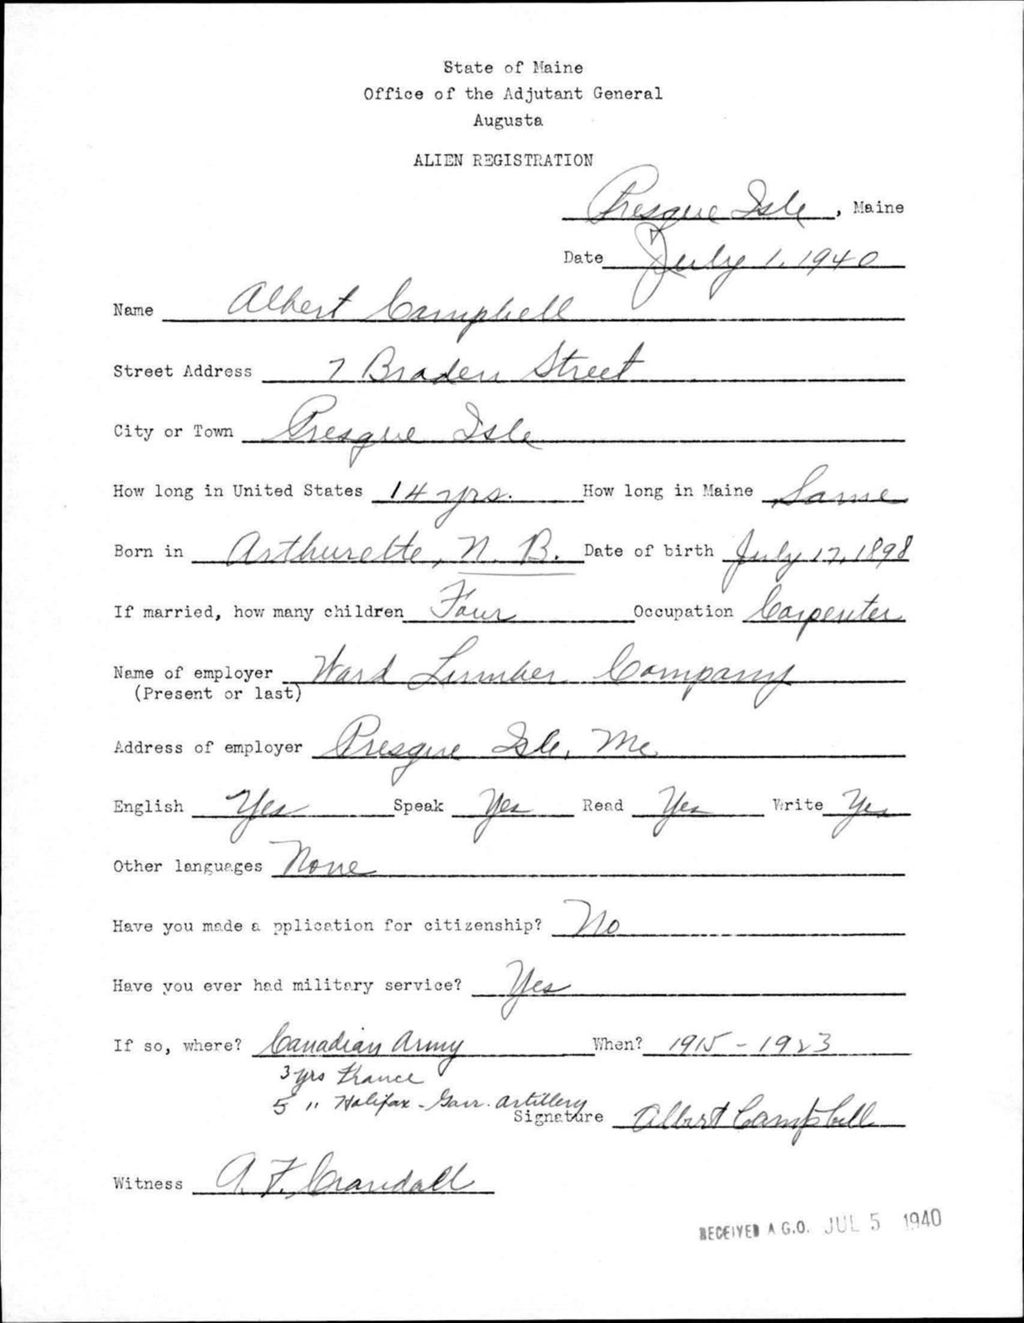 State of Maine
Office of the Adjutant General
Augusta
ALIEN REGISTRATION
Presque Isle, Maine
Date July 1, 1940
Name Albert Campbell
Street Address 7 Braden Street
City or Town Presque Isle
How long in United States 14 yrs. How long in Maine Same
Born in Arthurette, N. B. Date of birth July 17, 1898
If married, how many children Four Occupation Carpenter
Name of employer Ward Lumber Company
(Present or last)
Address of employer Presque Isle, Me
English Yes Speak Yes Read Yes Write Yes
Other languages None
Have you made a pplication for citizenship? No
Have you ever had military service? Yes
If so, where? Canadian Army When? 1915 - 1923
3 yrs France
5 " Halifax - Garr. Artillery
Signature Albert Campbell
Witness A. F. Crandall
RECEIVED A.G.O. JUL 5 1940